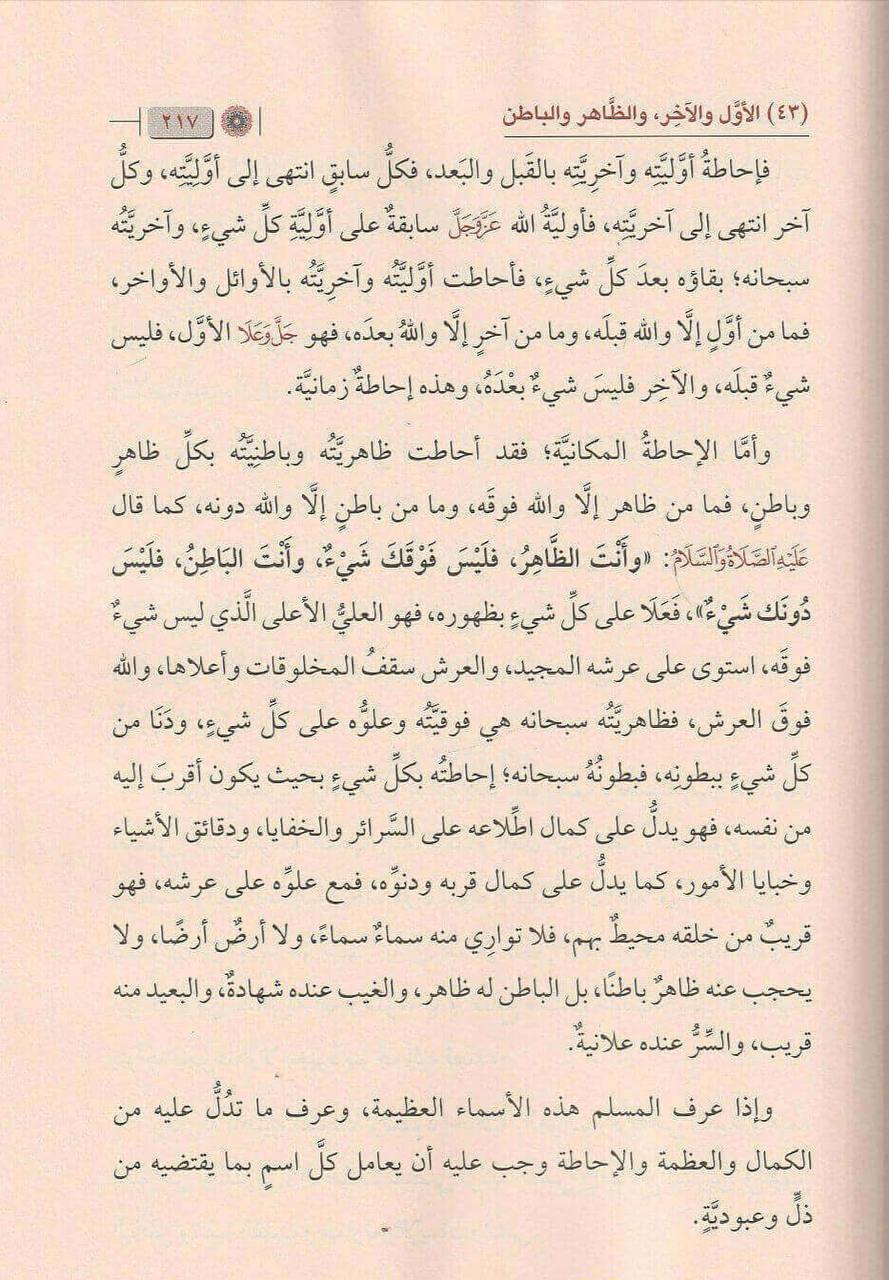 (٤٣) الأوَّل والآخِر، والظَّاهر والباطن
٢١٧
فإحاطةُ أوَّليَّتِه وآخرِيَّتِه بالقَبل والبَعد، فكلُّ سابقٍ انتهى إلى أوَّلِيَّتِه، وكلُّ
آخر انتهى إلى آخريَّتِه، فأوليَّةُ الله عَزَّوَجَلَّ سابقةٌ على أوَّليَّةِ كلِّ شيءٍ، وآخريَّتُه
سبحانه؛ بقاؤه بعدَ كلِّ شيءٍ، فأحاطت أوَّليَّتُه وآخرِيَّتُه بالأوائل والأواخر،
فما من أوَّلٍ إلَّا والله قبلَه، وما من آخرٍ إلَّا واللهُ بعدَه، فهو جَلَّ وَعَلَا الأوَّل، فليس
شيءٌ قبلَه، والآخِر فليسَ شيءٌ بعْدَهُ، وهذه إحاطةٌ زمانيَّة.
وأمَّا الإحاطةُ المكانيَّة؛ فقد أحاطت ظاهريَّتُه وباطنِيَّتُه بكلِّ ظاهرٍ
وباطنٍ، فما من ظاهر إلَّا والله فوقَه، وما من باطنٍ إلَّا والله دونه، كما قال
عَلَيْهِ الصَّلَاةُ وَالسَّلَامُ: «وأَنْتَ الظَّاهِرُ، فلَيْسَ فَوْقَكَ شَيْءٌ، وأَنْتَ البَاطِنُ، فلَيْسَ
دُونَك شَيْءٌ»، فَعَلَا على كلِّ شيءٍ بظهوره، فهو العليُّ الأعلى الَّذي ليس شيءٌ
فوقَه، استوى على عرشه المجيد، والعرش سقفُ المخلوقات وأعلاها، والله
فوقَ العرش، فظاهريَّتُه سبحانه هي فوقيَّتُه وعلوُّه على كلِّ شيءٍ، ودَنَا من
كلِّ شيءٍ ببطونِه، فبطونُهُ سبحانه؛ إحاطتُه بكلِّ شيءٍ بحيث يكون أقربَ إليه
من نفسه، فهو يدلُّ على كمال اطِّلاعه على السَّرائر والخفايا، ودقائق الأشياء
وخبايا الأمور، كما يدلُّ على كمال قربه ودنوِّه، فمع علوِّه على عرشه، فهو
قريبٌ من خلقه محيطٌ بهم، فلا توارِي منه سماءٌ سماءً، ولا أرضٌ أرضًا، ولا
يحجب عنه ظاهرٌ باطنًا، بل الباطن له ظاهر، والغيب عنده شهادةٌ، والبعيد منه
قريب، والسِّرُّ عنده علانيةٌ.
وإذا عرف المسلم هذه الأسماء العظيمة، وعرف ما تدُلُّ عليه من
الكمال والعظمة والإحاطة وجب عليه أن يعامل كلَّ اسمٍ بما يقتضيه من
ذلٍّ وعبوديَّةٍ.